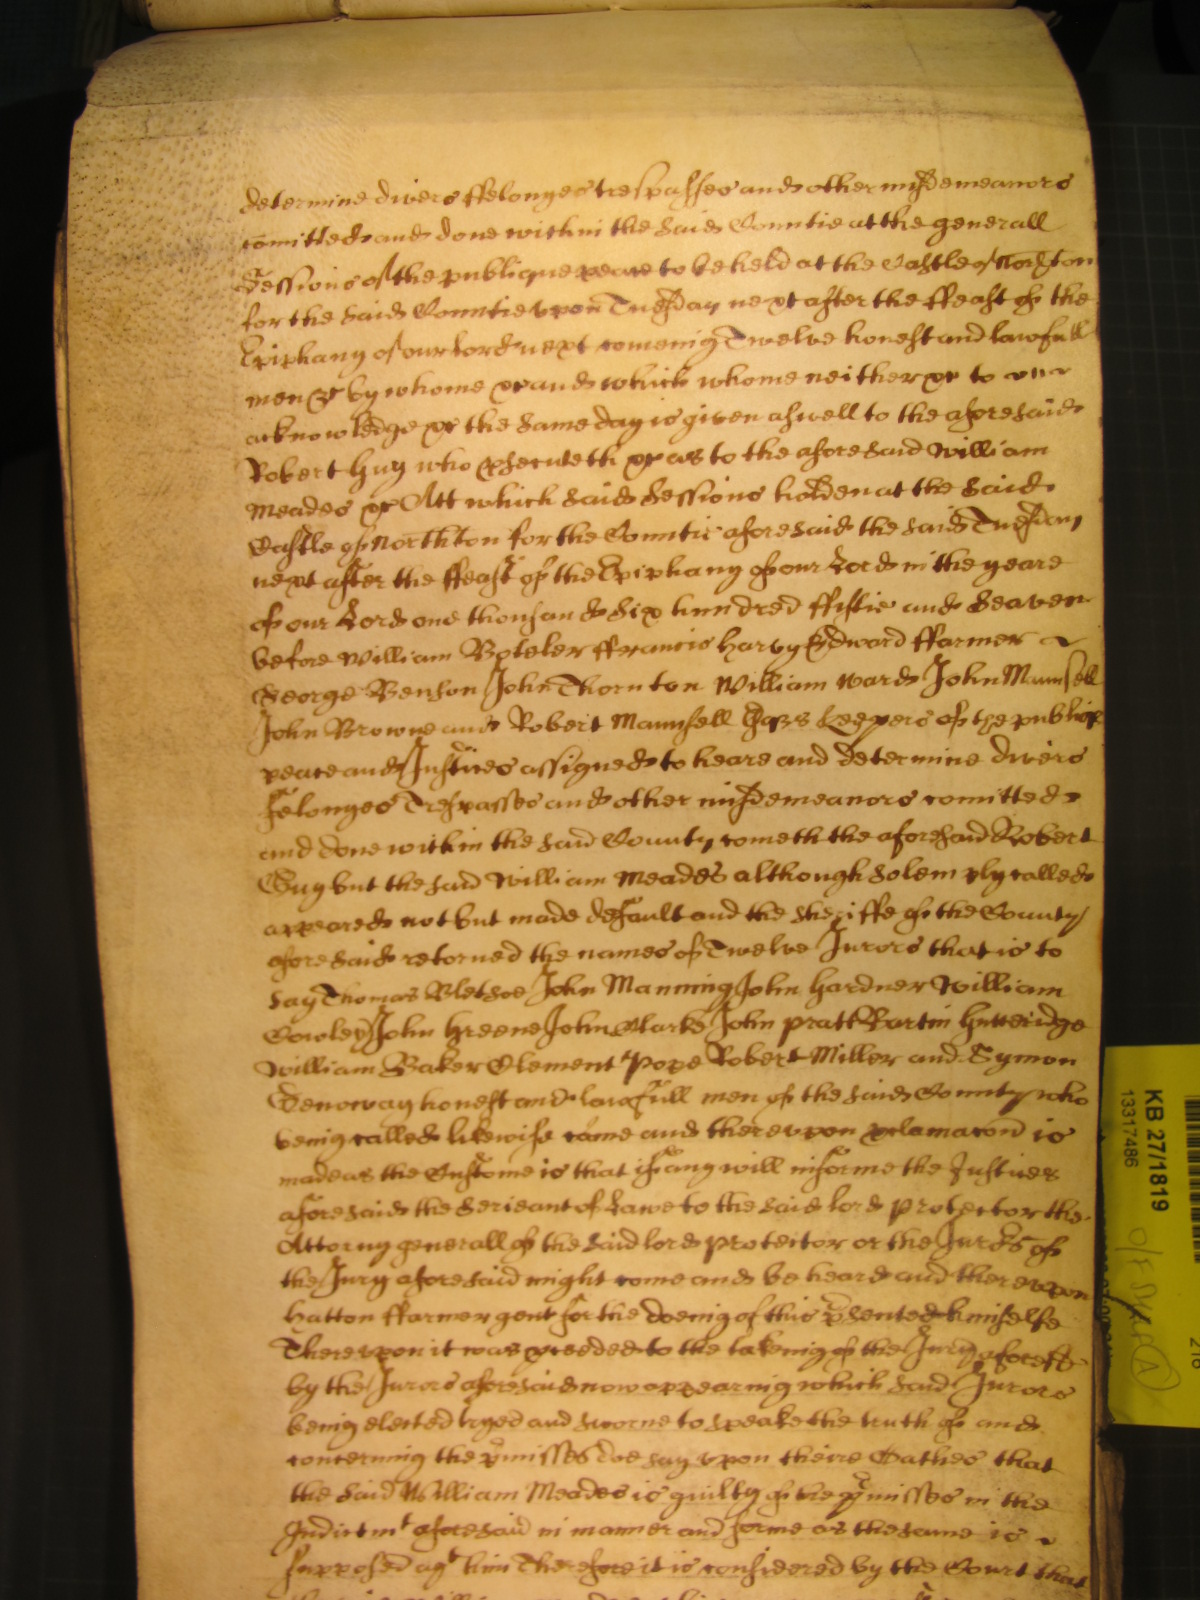 determine divers ffelonyes trespasses and other misdemeanors
comitted and done within the said Countie at the generall
Sessions of the publique peace to be held at the Castle of Northton
for the said Countie upon Tuesday next after the ffeast of the
Epiphany of our lord next comeing Twelve honest and lawfull
men &c by whome &c and which whome neither &c to
acknowledge &c the same day is given aswell to the aforesaid
Robert Guy who psecuteth &c as to the aforesaid William
Meades &c Att which said Sessions holden at the said
Castle of Northton for the Countie aforesaid the said Tuesday
next after the ffeast of the Epiphany of our Lord in the yeare
of our Lord one thousand six hundred ffiftie and seaven
before William Boteler ffrancis Harvy Edward ffarmer
George Benson John Thornton William Ward John Maunsell
John Browne and Robert Maunsell Esqrs Keepers of the publique
peace and Justices assigned to heare and determine divers
felonyes Trespasses and other misdemeanors comitted
and done within the said County cometh the aforesaid Robert
Guy but the said William Meades although solemply called
appeared not but made default and the sheriffe of the County
aforesaid retorned the names of Twelve Jurors that is to
say Thomas Bletsoe John Manning John Hardner William
Cowley John Greene John Clarke John Pratt Martin Gutteridge
William Baker Clement Pope Robert Miller and Symon
Denoway honest and lawfull men of the said County who
being called likewise came and thereupon pclamacon is
made as the Custome is that if any will informe the Justices
aforesaid the Serieant of Lawe to the said lord protector the
Attorny generall of the said lord protector or the Jurors of
the Jury aforesaid might come and be heard and thereupon
Hatton ffarmer gent for the doeing of this psented himselfe
Thereupon it was pceeded to the takeing of the Jury aforesd
by the Jurors aforesaid now appearing which said Jurors
being elected tryed and sworne to speake the truth of and
concerning the pmisses doe say upon theire Oathes that
the said William Meades is guilty of the pmisses in the
Indictmt aforesaid in manner and forme as the same is
supposed agt him Therefore it is considered by the Court that
KB 27/1819
13317486